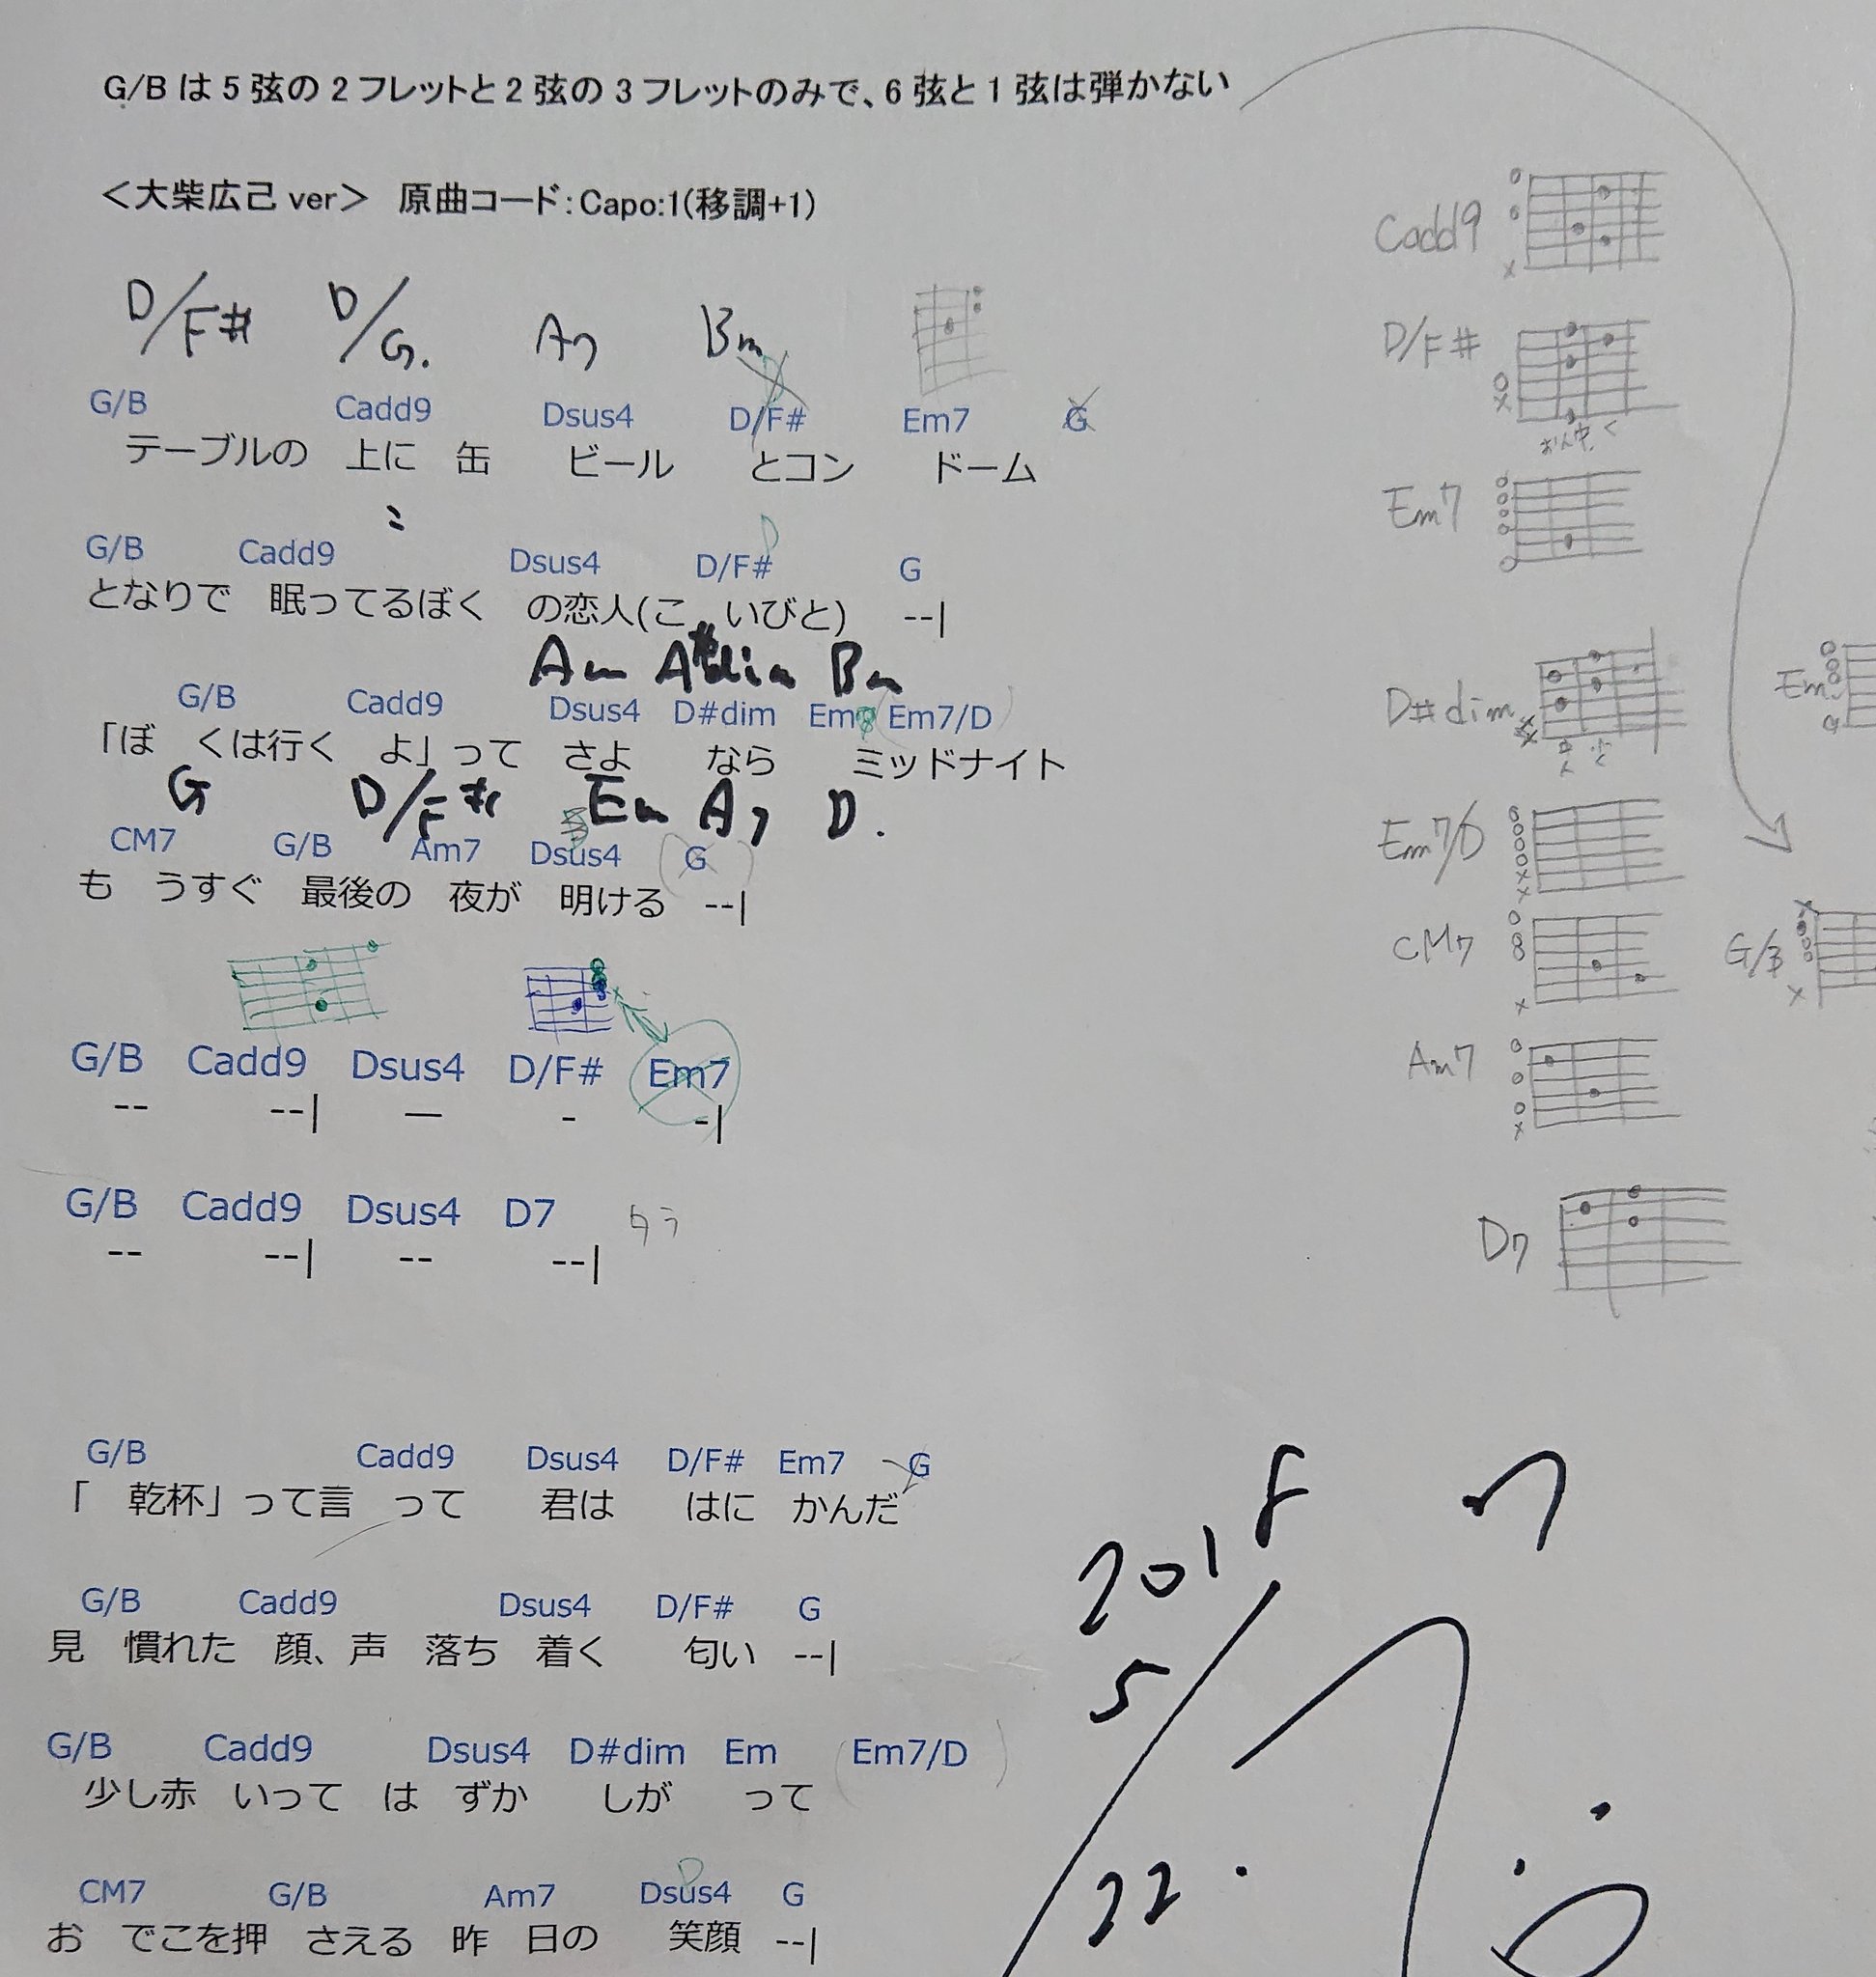 G/B は 5 弦の 2 フレットと 2 弦の 3 フレットのみで、6 弦と 1 弦は弾かない
＜大柴広己 ver＞ 原曲コード：Capo:1(移調+1)
D/F# D/G. A7 Bm
G/B Cadd9 Dsus4 D/F# Em7 G
テーブルの 上に 缶 ビール とコン ドーム
G/B Cadd9 Dsus4 D/F# G
となりで 眠ってるぼく の恋人(こ いびと) --|
Am A#dim Bm
G/B Cadd9 Dsus4 D#dim Em Em7/D
「ぼ くは行く よ」って さよ なら ミッドナイト
G D/F# Em A7 D.
CM7 G/B Am7 Dsus4 G
も うすぐ 最後の 夜が 明ける --|
G/B Cadd9 Dsus4 D/F# Em7
-- --| — - -|
G/B Cadd9 Dsus4 D7
-- --| -- --|
G/B Cadd9 Dsus4 D/F# Em7 G
「 乾杯」って言 って 君は はに かんだ
G/B Cadd9 Dsus4 D/F# G
見 慣れた 顔、声 落ち 着く 匂い --|
G/B Cadd9 Dsus4 D#dim Em Em7/D
少し赤 いって は ずか しが って
CM7 G/B Am7 Dsus4 G
お でこを押 さえる 昨 日の 笑顔 --|
Cadd9
D/F#
Em7
D#dim
Em
Em7/D
CM7
G/B
Am7
D7
201
5
22.